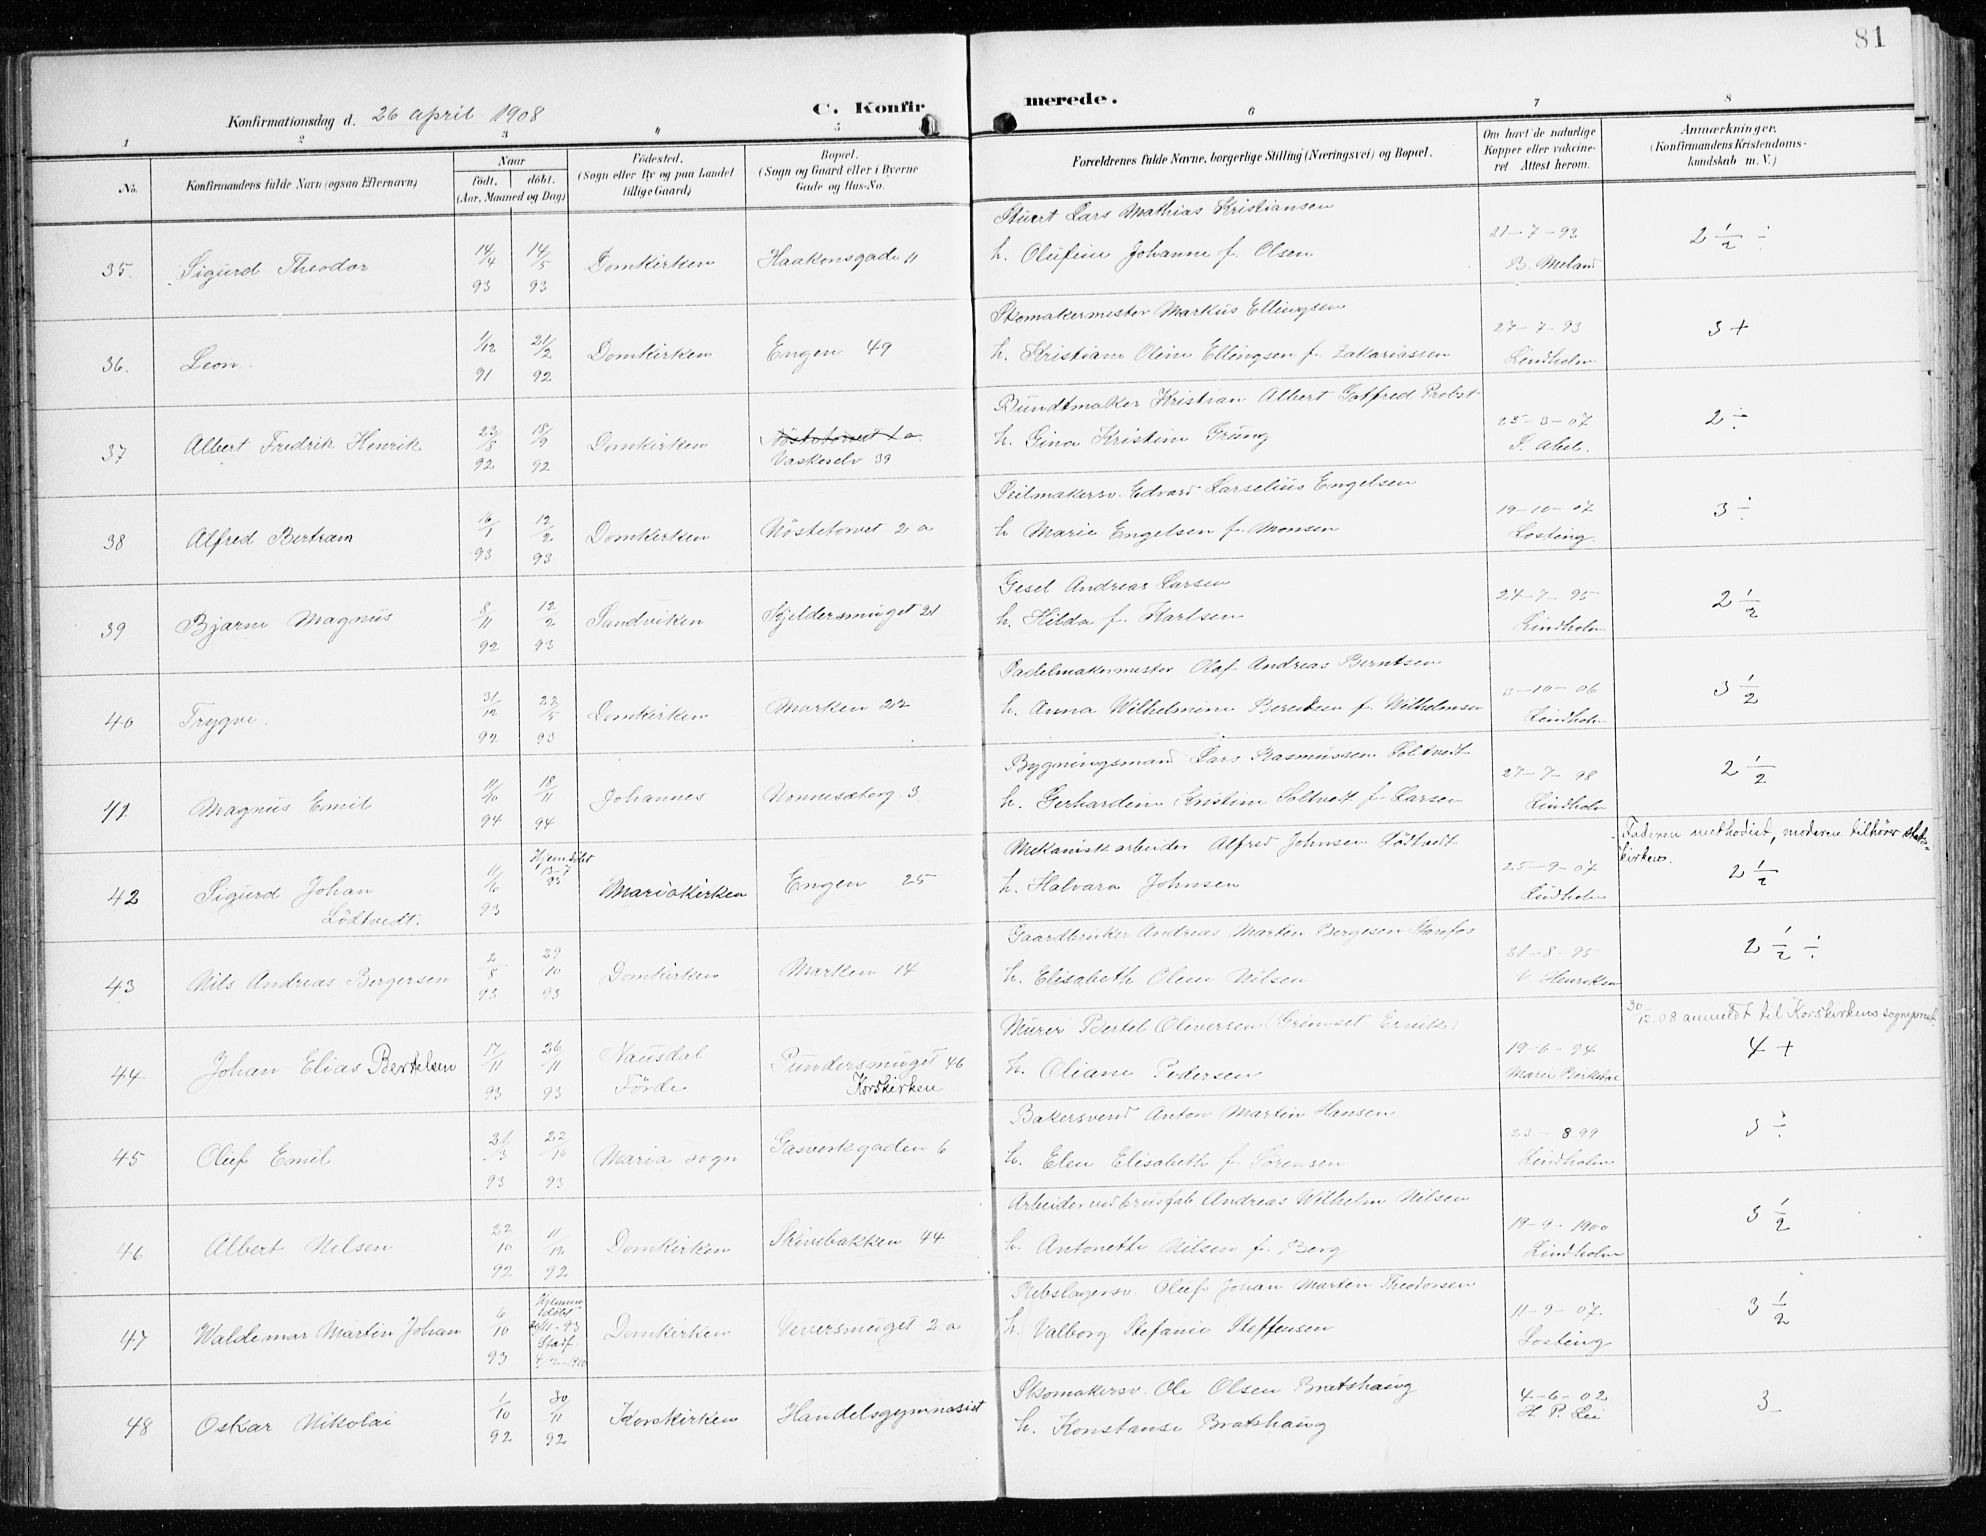 81
Konfirmationsdag d. 26 april 1908
C. Konfirmerede.
1 2 3 4 5 6 7 8
No.
Konfirmandens fulde Navn (ogsaa Efternavn)
Naar
födt. döbt.
(Aar, Maaned og Dag)
Födested.
(Sogn eller By og paa Landet
tillige Gaard)
Bopæl.
(Sogn og Gaard eller i Byerne
Gade og Hus-No.
Forældrenes fulde Navne, borgerlige Stilling (Næringsvei) og Bopæl.
Om havt de naturlige
Kopper eller vakcine-
ret Attest herom.
Anmærkninger.
(Konfirmandens Kristendoms-
kundskab m. V.)
35. Sigurd Theodor 14/4 93 14/5 93 Domkirken Haakonsgade 11
Stuert Lars Mathias Kristiansen
h. Olufine Johanne f. Olsen
31-7-93
B. Meland
2 1/2 ÷
36. Leon. 1/12 91 21/2 92 Domkirken Engen 49
Skomakermester Markus Ellingsen
h. Kristiane Oline Ellingsen f. Zakariassen
27-7-93
Lindholm
3 +
37 Albert Fredrik Henrik 23/5 92 18/9 92 Domkirken Nöstetorvet 2 a.
Vaskerelv 39
Bundtmaker Kristian Albert Gotfred Probst
h. Gina Kristine Grung
25-3-07
2 ÷
38 Alfred Bertram 16/1 93 12/2 93 Domkirken Nöstetorvet 2 a
Seilmakersv. Edvard Larselius Engelsen
h Marie Engelsen f. Monsen
19-10-07
Losting.
3 ÷
39 Bjarne Magnus 8/11 92 12/2 93 Sandviken Kjeldersmuget 21
Gesel Andreas Larsen
h. Hilda f. Karlsen
24-7-95
Lindholm
2 1/2
40 Trygve. 31/12 92 22/5 93 Domkirken Marken 22
Sadelmakermester Olaf Andreas Berntsen
h. Anna Wilhelmine Berntsen f. Wilhelmsen
3-10-06
Lindholm
3 1/2
41 Magnus Emil 11/10 94 18/11 94 Johannes Nonnesæterg. 3
Bygningsmand Lars Rasmussen Soltvedt
h. Gerhardine Kristine Soltvedt f. Larsen
27-7-98
Lindholm
2 1/2
42 Sigurd Johan
Lödtvedt.
11/10 93 Hjemdöbt 13-7 95 Mariakirken Engen 25
Mekanisk arbeider Alfred Johnsen Lödtvedt
h. Halvara Johnsen
25-9-07
Lindholm
Faderen methodist, moderen tilhörer stats-
kirken.
2 1/2
43 Nils Andreas Bergersen 2/8 93 29/10 93 Domkirken Marken 14
Gaardbruker Andreas Martin Bergesen Storefos
h. Elisabeth Oline Nilsen
31-8-95
V. Henriksen
2 1/2 ÷
44 Johan Elias Bertelsen 17/11 93 26/11 93 Nausdal
Förde Pundersmuget 46
Korskirken
Murer Bertel Oliversen (Grimset Ervik)
h. Oliane Pedersen
19-6-94
Marie Birkeland
30/12.08 anmeldt til Korskirkens sogneprest.
4 +
45 Oluf Emil 31/3 93 22/10 93 Maria sogn Gasverkgaden 6
Bakersvend Anton Martin Hansen
h. Elen Elisabeth f. Sörensen
23-8 99
Lindholm
3 ÷
46 Albert Nilsen 22/10 92 11/12 92 Domkirken Skivebakken 44
Arbeider ved brusfab Andreas Wilhelm Nilsen
h. Antonette Nilsen f. Berg
19-9-1900
Lindholm
3 1/2
47 Waldemar Martin Johan 6/10 93 Hjemme
döbt
93
Stadf. Domkirken Veversmuget 2 a
Rebslagersv. Oluf Johan Marten Theodorsen
h. Valborg Stefanie Steffensen
11-9-07
Losting
3 1/2
48 Oskar Nikolai 1/10 92 30/11 92 Korskirken Handelsgymnasiet
Skomakersv. Ole Olsen Bratshaug
h. Konstanse Bratshaug
4-6-02
H. P. Lie
3